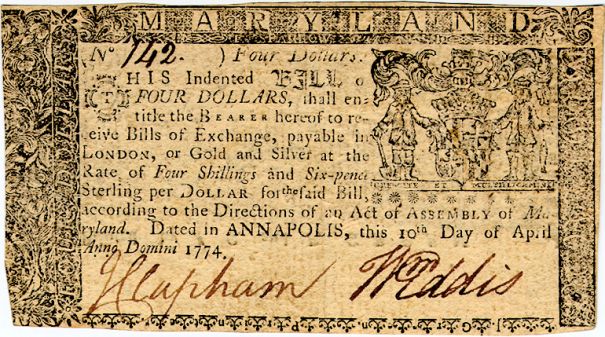 MARYLAND
No 142. ) Four Dollars.
THIS Indented BILL o
FOUR DOLLARS, shall en-
title the BEARER hereof to re-
ceive Bills of Exchange, payable in
LONDON, or Gold and Silver at the
Rate of Four Shillings and Six-penc
Sterling per DOLLAR for the said Bill,
according to the Directions of an Act of ASSEMBLY of Ma-
ryland. Dated in ANNAPOLIS, this 10th Day of April
Anno Domini 1774.
CRESCITE ET MULTIPLICAMINI
J Clapham Wm Eddis